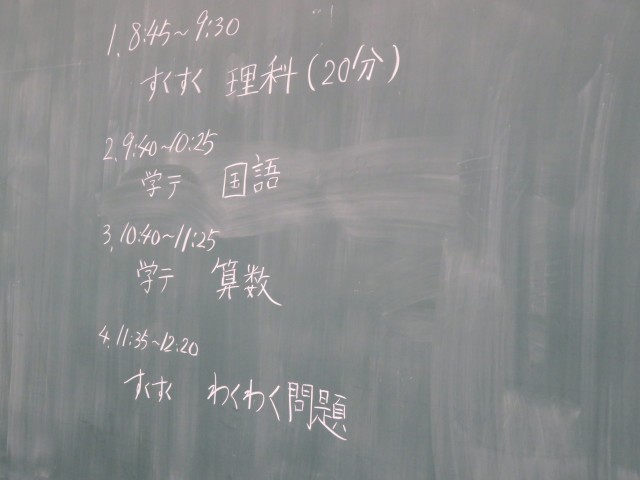 1. 8:45~9:30
すくすく 理科(20分)
2. 9:40~10:25
学テ 国語
3. 10:40~11:25
学テ 算数
4. 11:35~12:20
すくすく わくわく問題